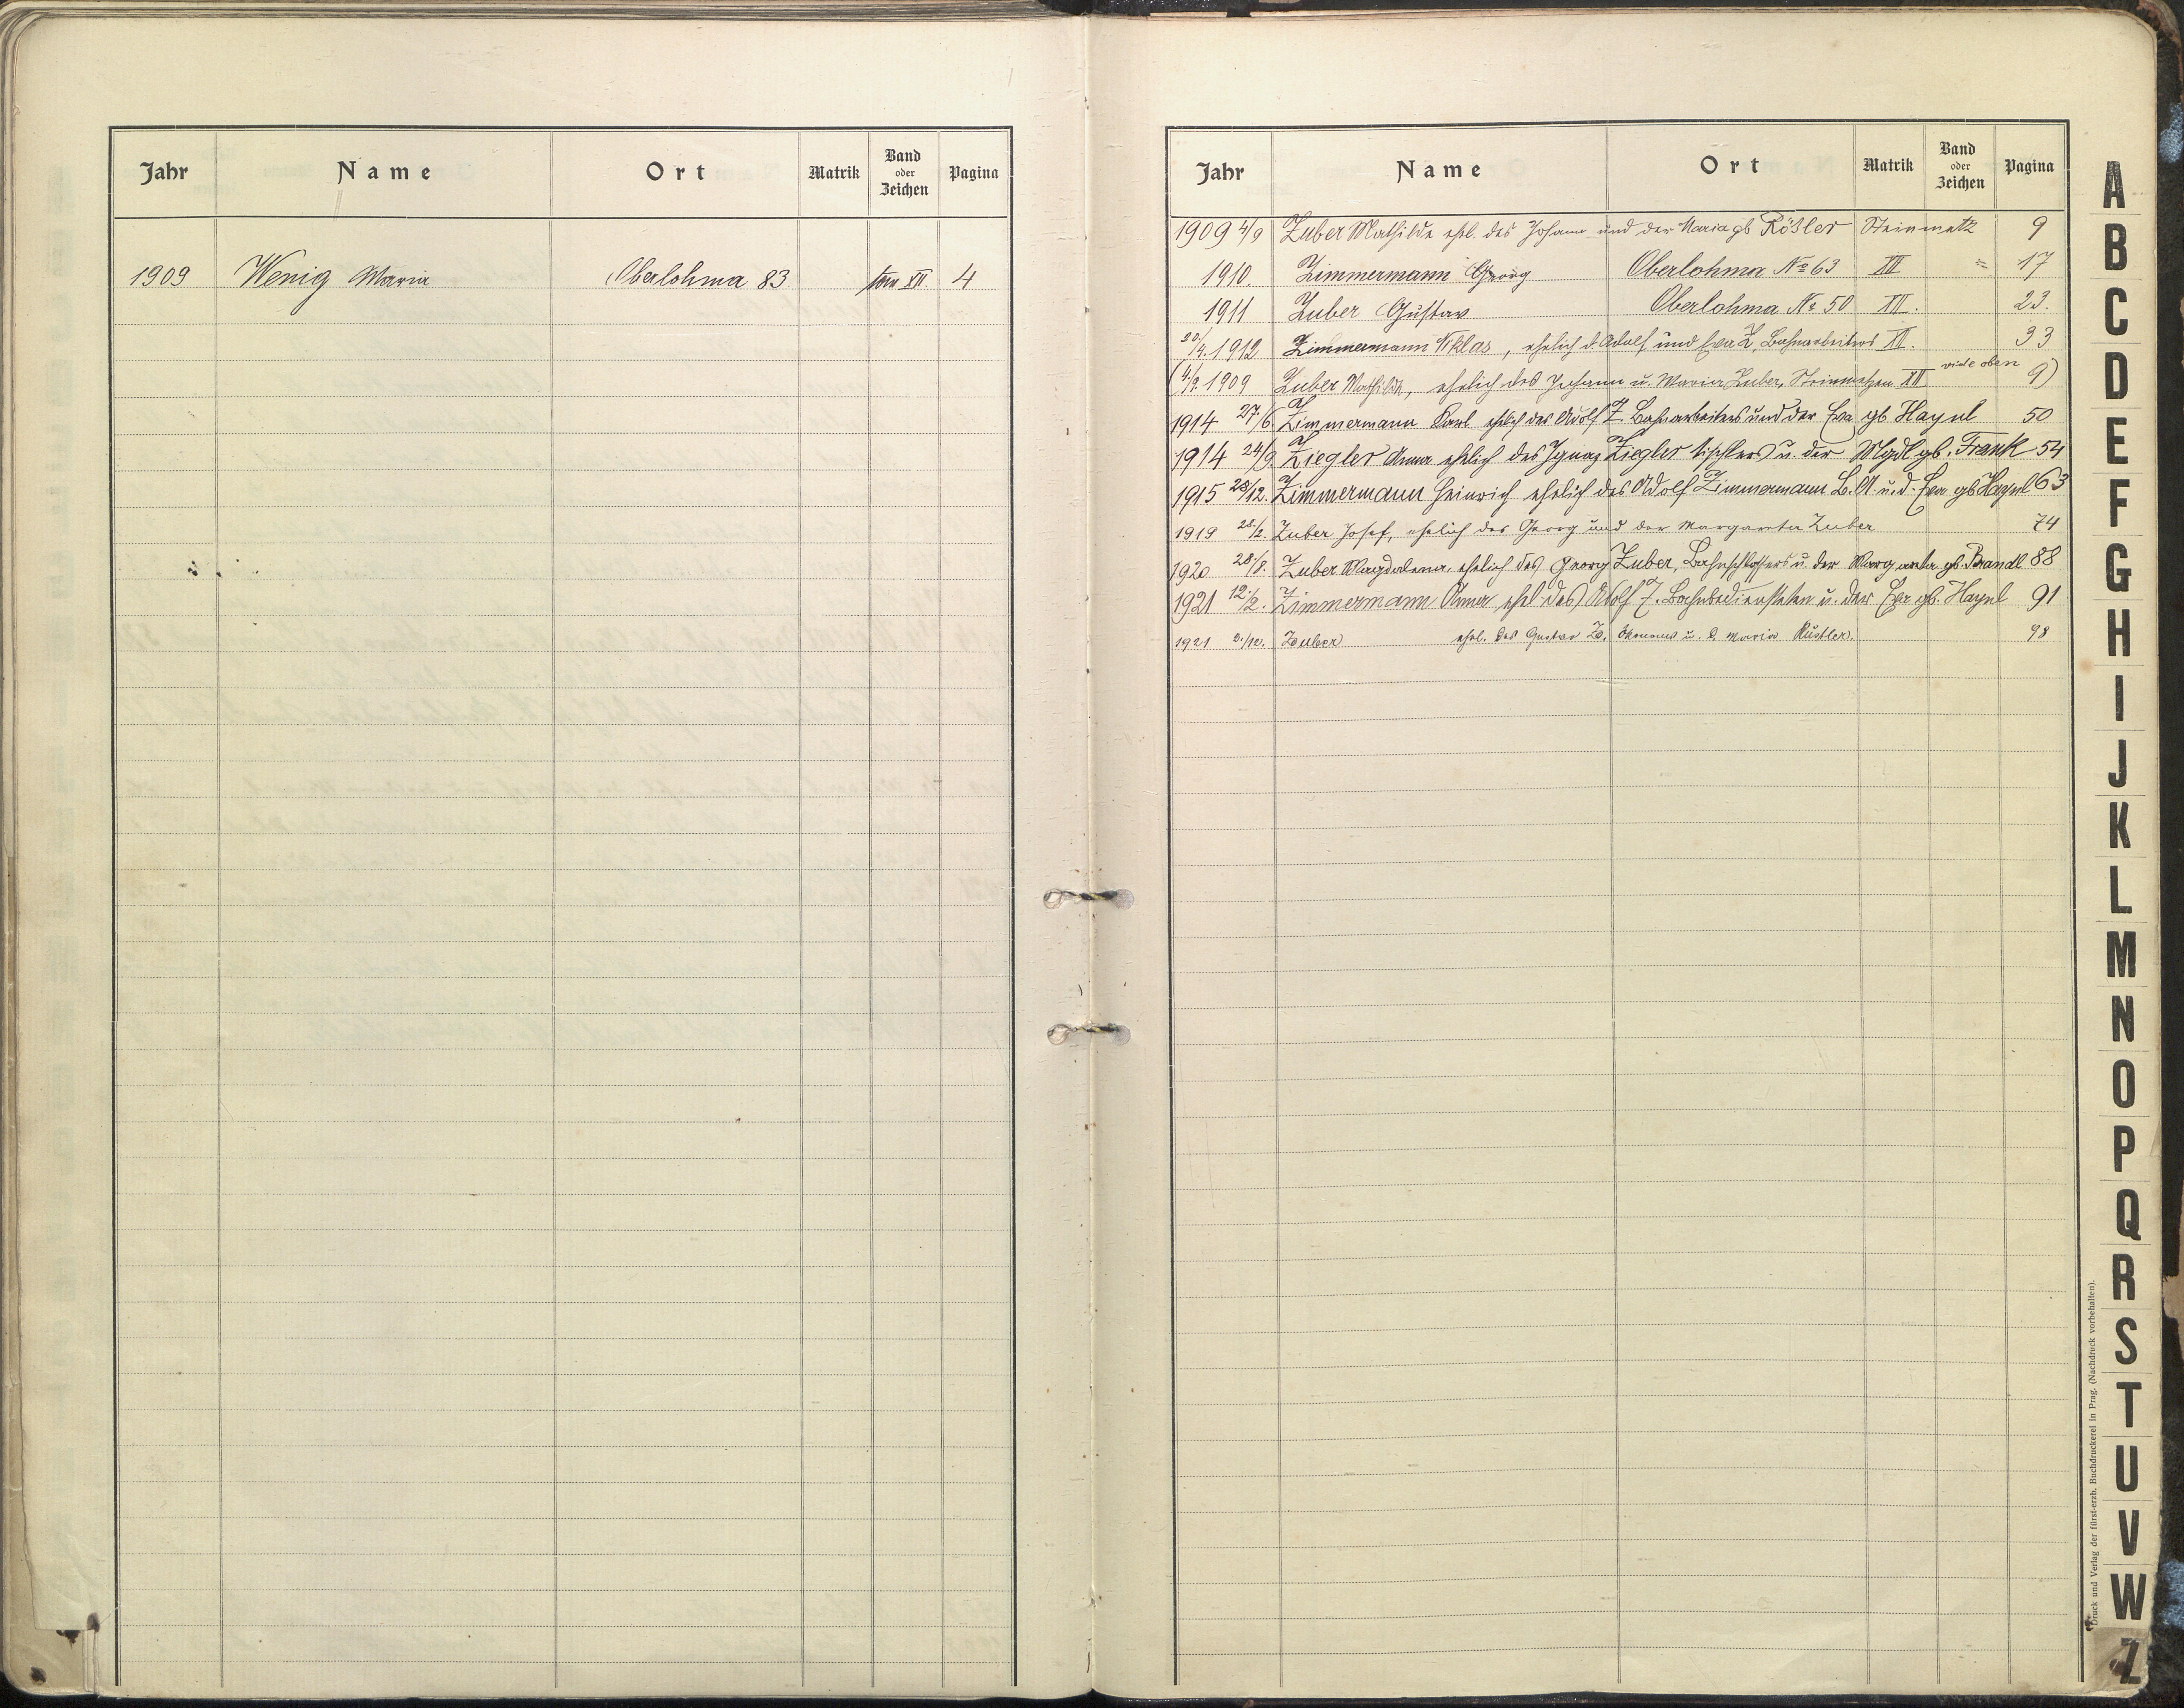 Jahr Name Ort Matrik Band oder Zeichen Pagina
1909 Wenig Maria Oberlohma 83. tom XII. 4
Jahr Name Ort Matrik Band oder Zeichen Pagina
1909 4/9 Zuber Mathilde ehl. des Johann und der Maria gb Rößler Steinmetz 9
1910. Zimmermann Georg Oberlohma № 63 XII 17
1911 Zuber Gustav Oberlohma № 50 XII. 23.
20/4. 1912 Zimmermann Niklas, ehelich d. Adolf und Eva Z, Bahnarbeiters XII. 33
(4/9. 1909 Zuber Mathilde, ehelich des Johann u. Maria Zuber, Steinmetzen XII vide oben 9)
1914 27/6 Zimmermann Karl ehelich des Adolf Z. Bahnarbeiters und der Eva gb Haynl 50
1914 24/9. Ziegler Anna ehelich des Ignaz Ziegler Tischlers u. der Mgdl gb. Frank 54
1915 28/12. Zimmermann Heinrich ehelich des Adolf Zimmermann B.A. u. d. Eva gb Haynl 63
1919 28./2. Zuber Josef, ehelich des Georg und der Margareta Zuber 74
1920 28/8. Zuber Magdalena, ehelich des Georg Zuber, Bahnschlossers u. der Margareta gb. Brandl 88
1921 12./2. Zimmermann Anna ehel des Adolf Z. Bahnbediensteten u. der Eva gb. Haynl 91
1921 2./10. Zuber ehel. des Gustav Z. Ökonoms u. d. Maria Küstler. 98
A
B
C
D
E
F
G
H
I
J
K
L
M
N
O
P
Q
R
S
T
U
V
W
Z
Druck und Verlag der fürst-erzb. Buchdruckerei in Prag. (Nachdruck vorbehalten).